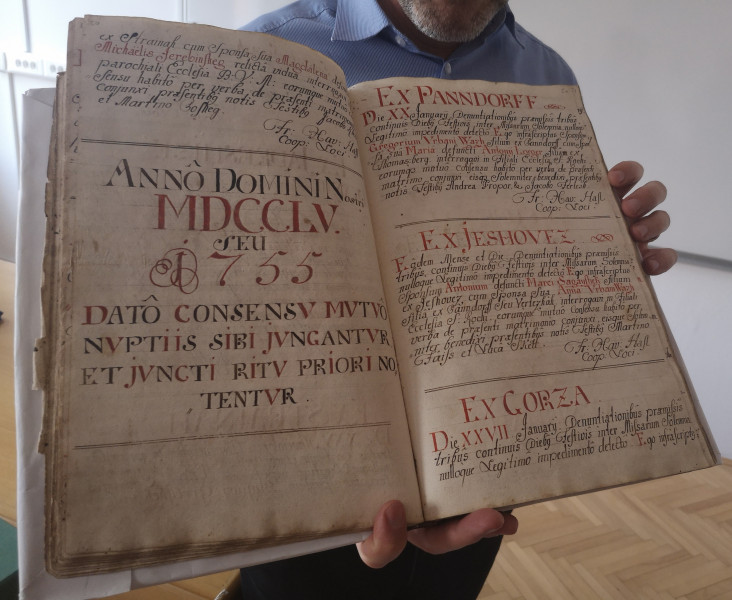 ex Stridonali cum Sponsa sua Magdalena
Michaelis relicta vidua
parochiali Ecclesia B.V.M: eorumque mutuo
sensu habito per verba de præsenti matrimonio
conjunxi præsentibus notis Testibus Jacobo
et Martino
Fr. Hav. Hasl.
Coop. Loci
ANNÔ DOMINI Nostri
MDCCLV.
SEU
1755
DATÔ CONSENSV MVTVÔ
NVPTIIS SIBI JVNGANTVR
ET JVNCTI RITV PRIORI NO,
TENTVR.
EX PANNDORFF
Die XX January Denuntiationibus præmissis tribus
continuis Diebus Festivis inter Missarum Solemnia nulloque
Legitimo impedimento detecto Ego infrascriptus
Gregorium Urban filium ex Panndorff cum Spon,
sa sua Maria defuncti Antony filia ex
interrogavi in filiali Ecclesia S. Rochi
eorumque mutuo consensu habito per verba de præsenti
matrimonio conjunxi eisque Solemniter benedixi, præsentibus
notis Testibus Andrea Propor, & Jacobo
Fr. Hav. Hasl
Coop: Loci
EX JESHOVEZ
Eodem Mense et Die Denuntiationibus præmissis
tribus, continuis Diebus Festivis inter Missarum Solemnia
nulloque Legitimo impedimento detecto Ego infrascriptus
Sponsum Antonium defuncti Marci filium
ex Jeshovez, cum Sponsa sua Anna
filia ex Panndorff interrogavi in filiali
Ecclesia S. Rochi eorumque mutuo consensu habito per
verba de præsenti matrimonio conjunxi, eisque Solem,
niter benedixi præsentibus notis Testibus Martino
et Luca
Fr: Hav: Hasl
Coop: Loci
EX GORZA
Die XXVII January Denuntiationibus præmissis
tribus continuis Diebus Festivis inter Missarum Solemnia
nulloque Legitimo impedimento detecto Ego infrascriptus